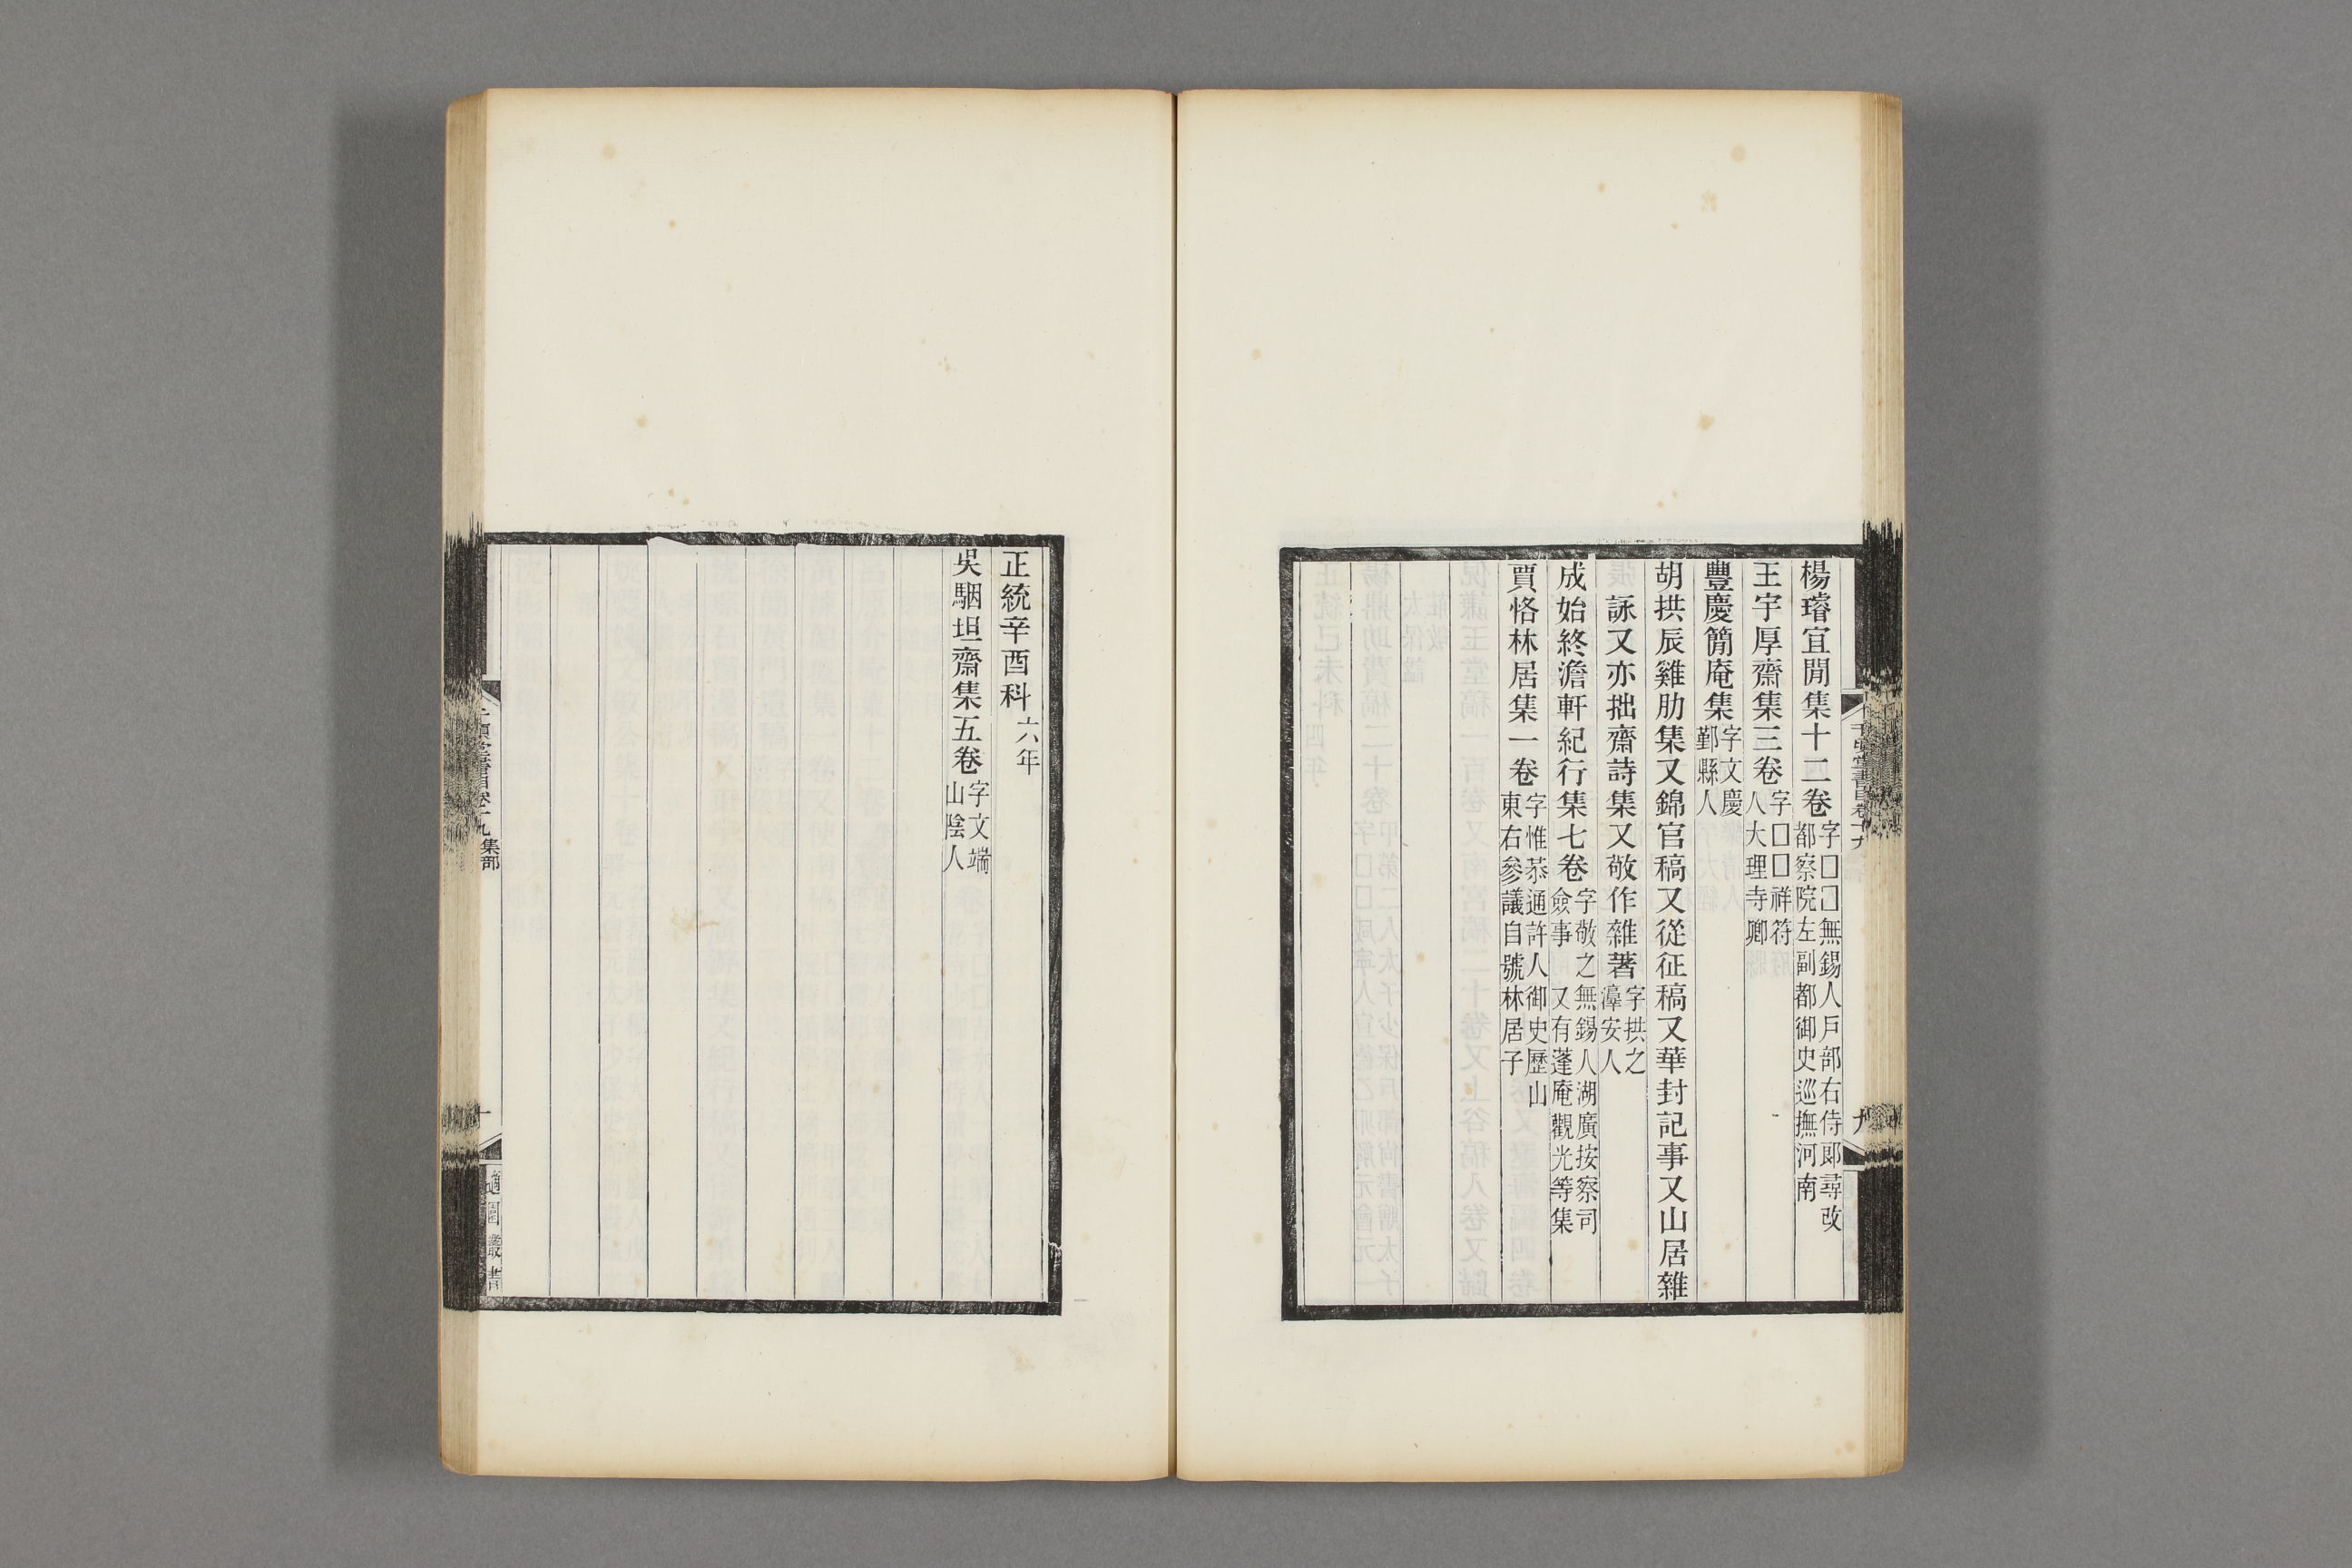 楊璿宜閒集十二卷字□□無錫人戶部右侍郞尋改
都察院左副都御史巡撫河南
王宇厚齋集三卷字□□祥符
人大理寺卿
豐慶簡庵集字文慶
鄞縣人
胡拱辰雞肋集又錦官稿又從征稿又華封記事又山居雜
詠又亦拙齋詩集又敬作雜著字拱之
淳安人
成始終澹軒紀行集七卷字敬之無錫人湖廣按察司
僉事又有蓬庵觀光等集
賈恪林居集一卷字惟恭通許人御史歷山
東右參議自號林居子
千頃堂書目卷十九
九
正統辛酉科六年
吳駰坦齋集五卷字文端
山陰人
千頃堂書目卷十九 集部
十
適園叢書